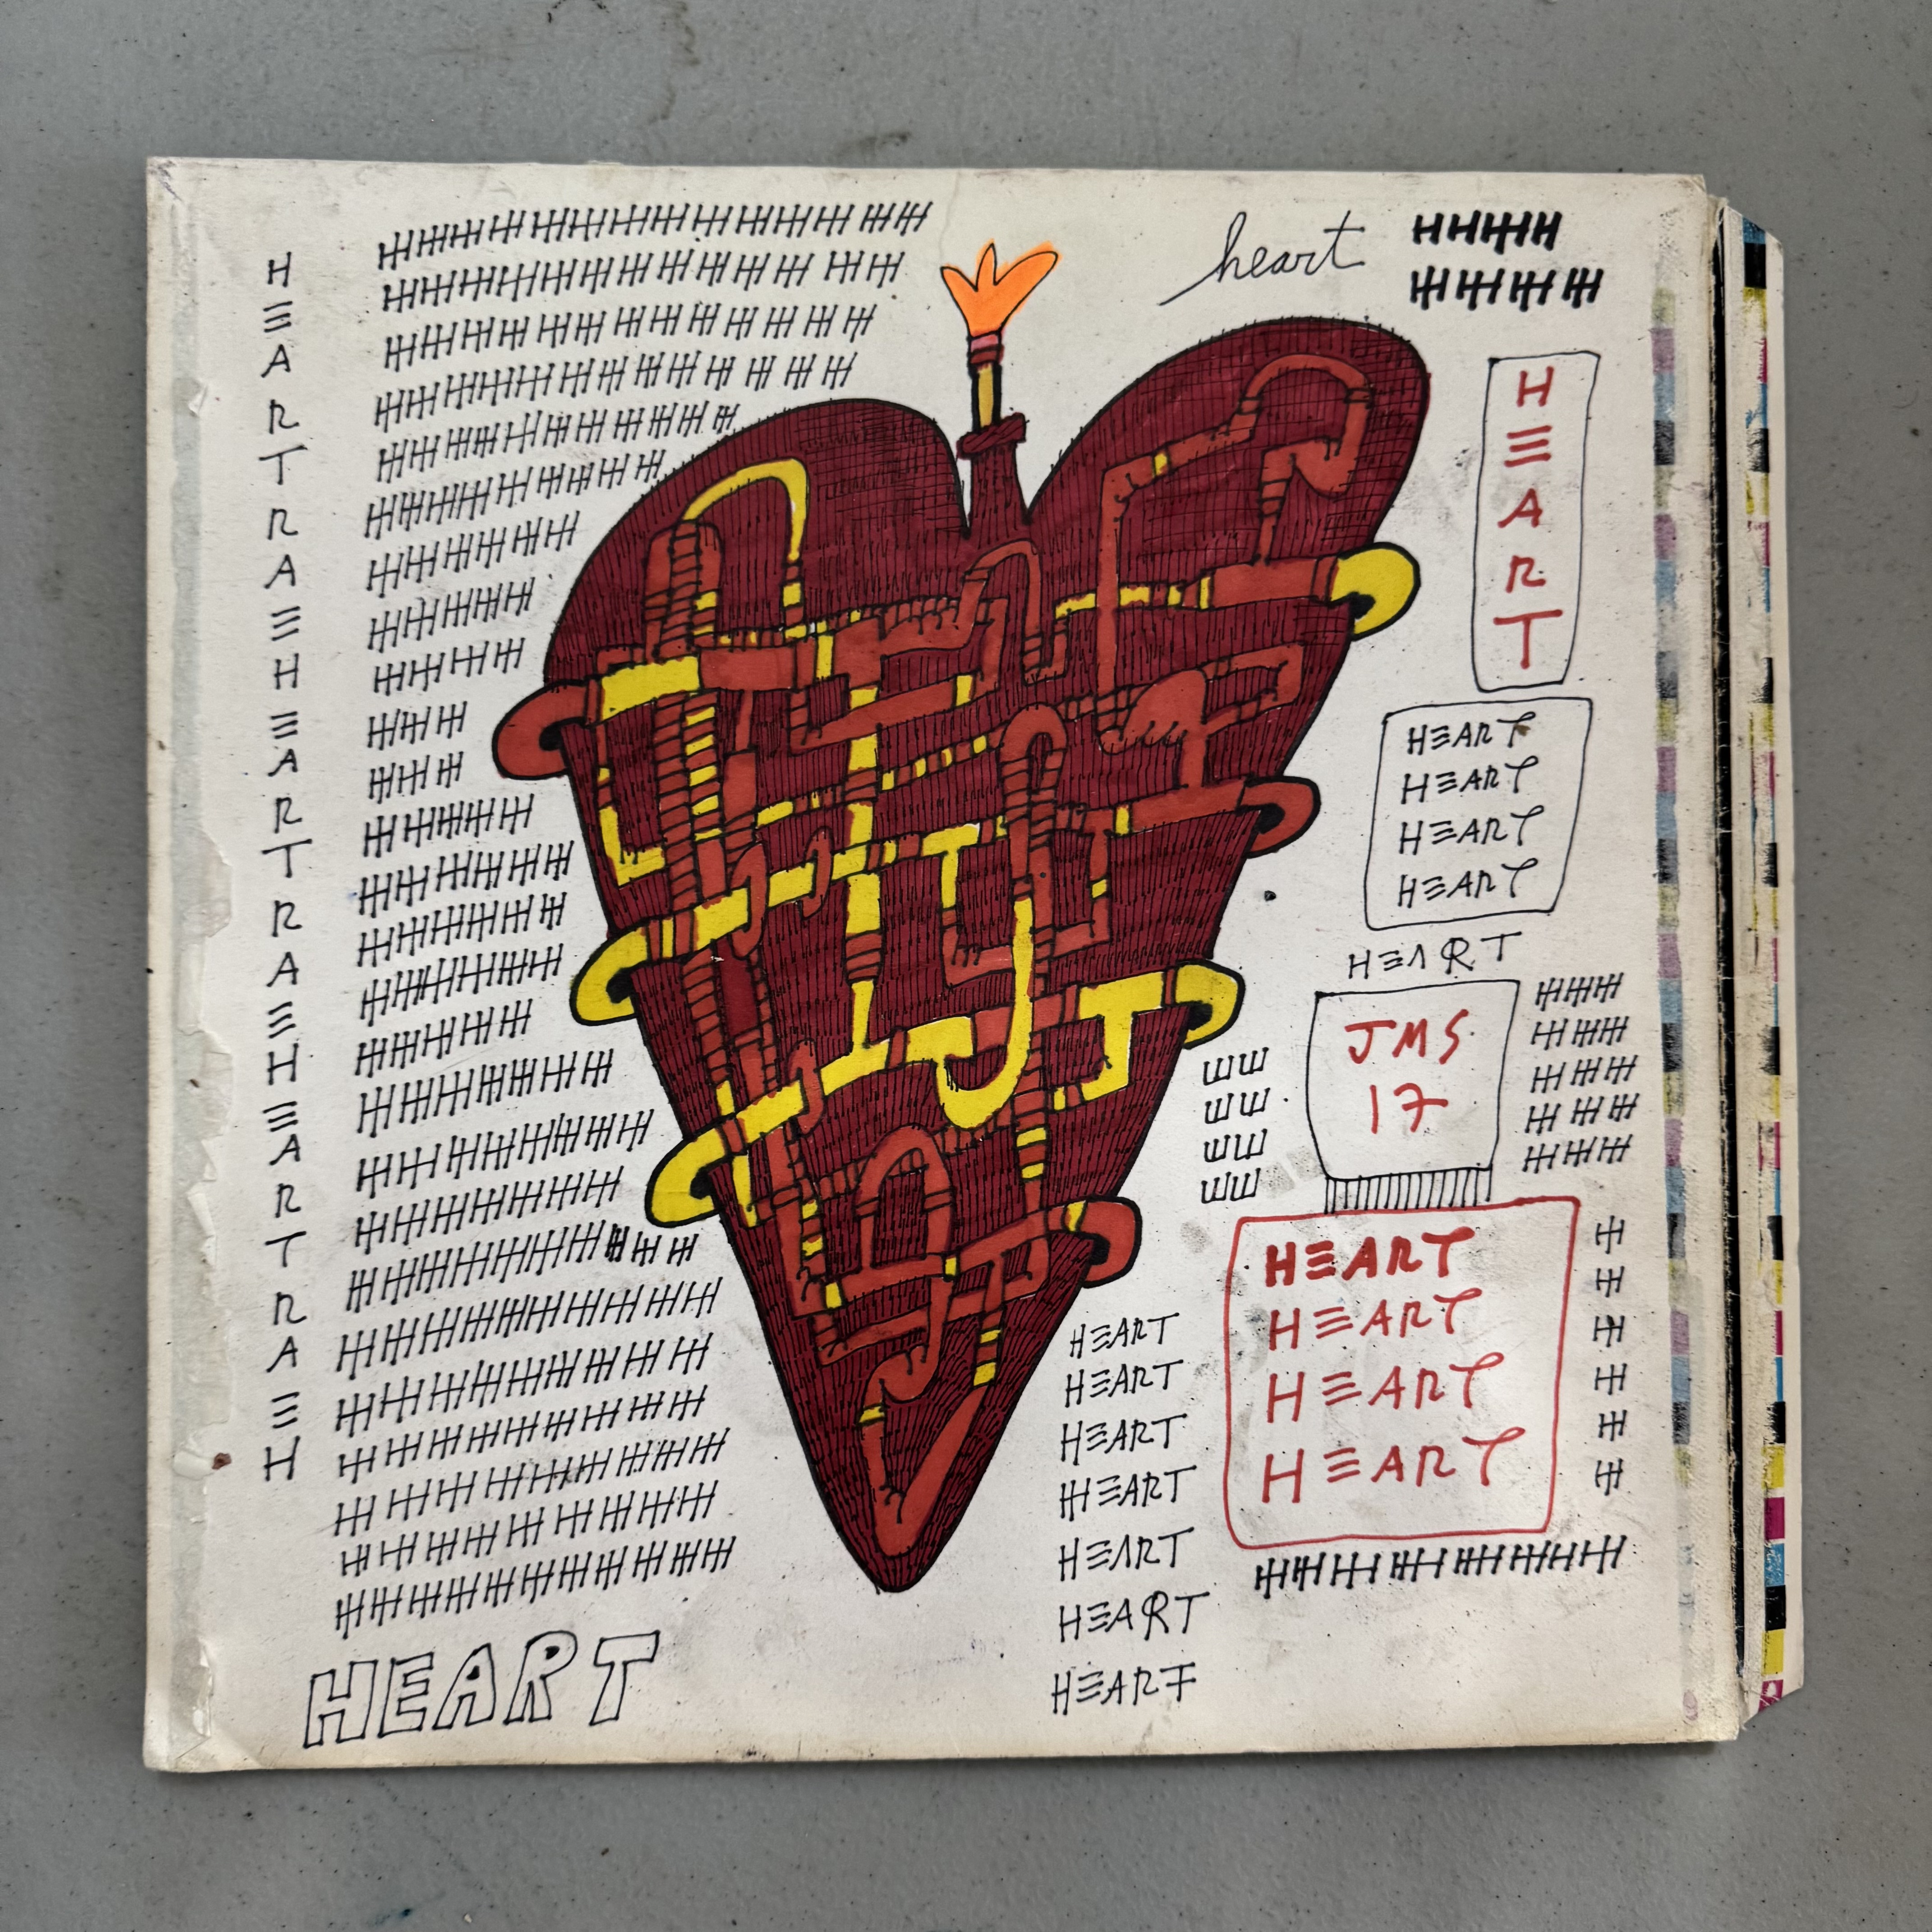 heart
HEARTRAEHEARTRAEHEARTRAEH
HEART
HEART
HEART
HEART
HEART
HEART
JMS
17
HEART
HEART
HEART
HEART
HEART
HEART
HEART
HEART
HEART
HEART
HEART
HEART